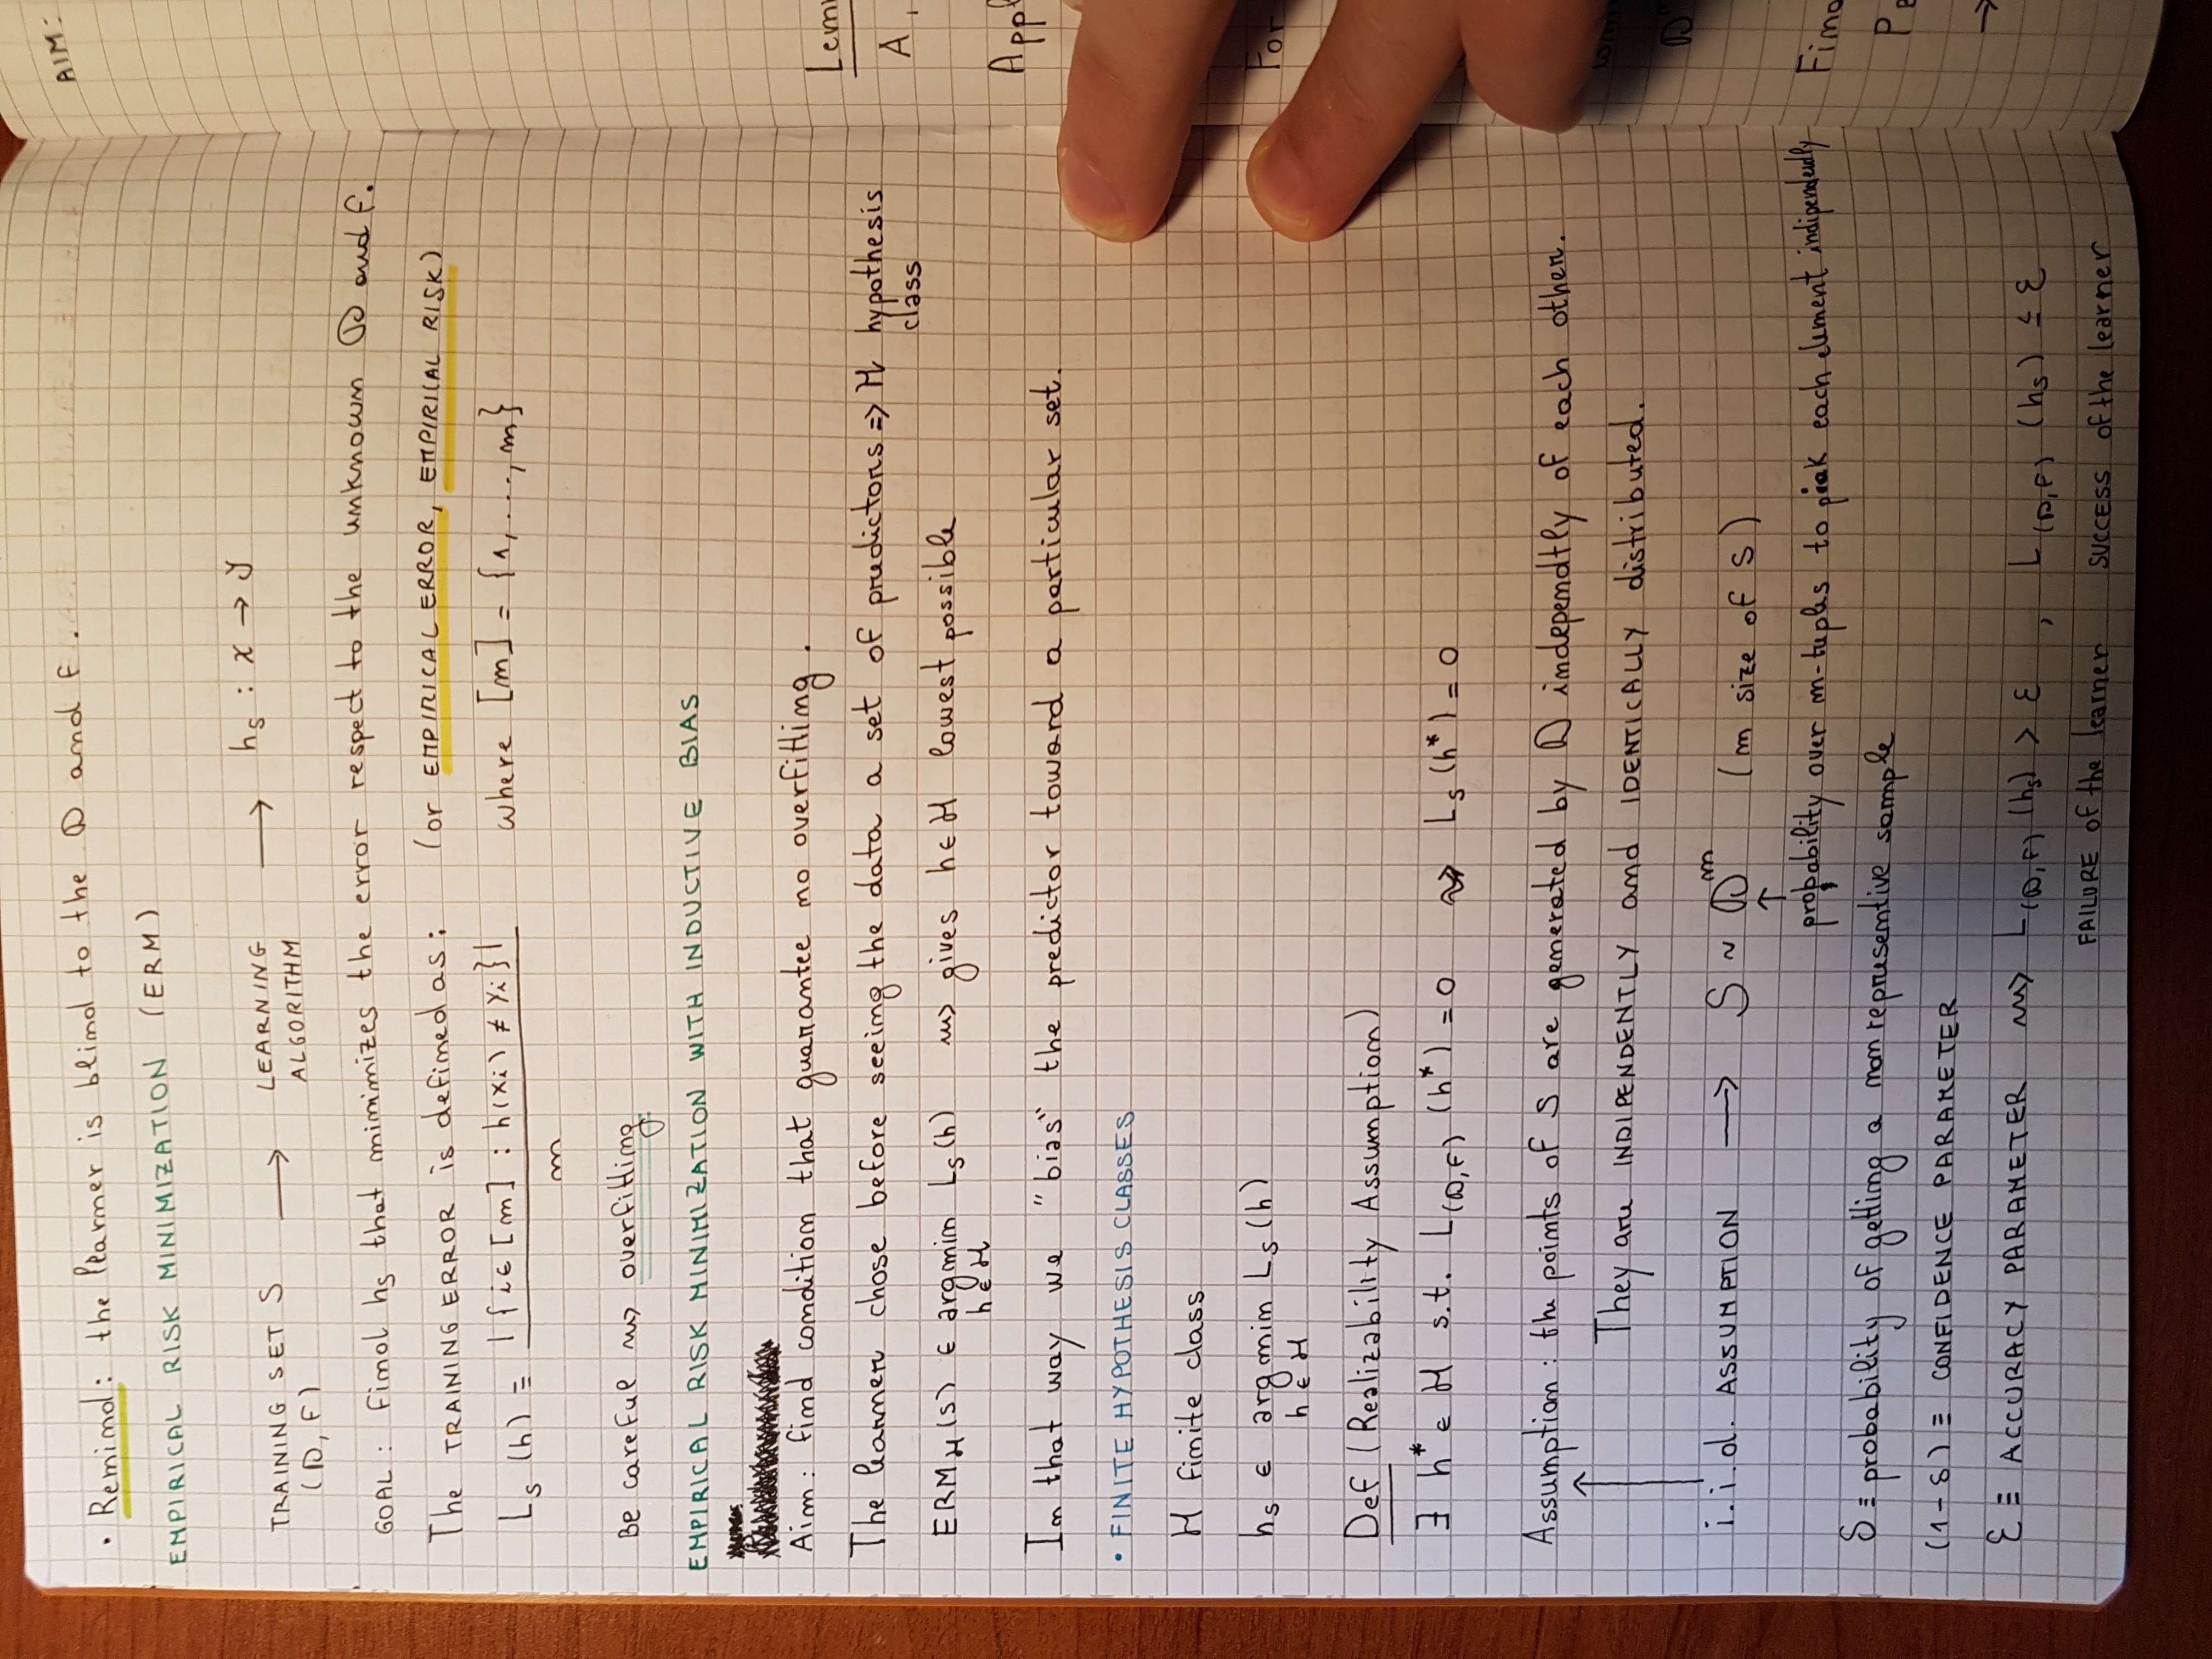 • Remind: the learner is blind to the D and f.
EMPIRICAL RISK MINIMIZATION (ERM)
TRAINING SET S → LEARNING ALGORITHM → hs : X → Y
(D, f)
GOAL: find hs that minimizes the error respect to the unknown D and f.
The TRAINING ERROR is defined as: (or EMPIRICAL ERROR, EMPIRICAL RISK)
Ls (h) ≡ |{i∈[m] : h(xi) ≠ yi}| / m where [m] = {1, ..., m}
Be careful ⇝ overfitting
EMPIRICAL RISK MINIMIZATION WITH INDUCTIVE BIAS
Aim: find condition that guarantee no overfitting.
The learner chose before seeing the data a set of predictors => H hypothesis
class
ERM_H (S) ∈ argmin Ls (h) ⇝ gives h∈H lowest possible
h∈H
In that way we "bias" the predictor toward a particular set.
• FINITE HYPOTHESIS CLASSES
H finite class
hs ∈ argmin Ls (h)
h∈H
Def (Realizability Assumption)
∃ h* ∈ H s.t. L(D,f) (h*) = 0 ⇝ Ls (h*) = 0
Assumption: the points of S are generated by D independtly of each other.
They are INDIPENDENTLY and IDENTICALLY distributed.
i.i.d. ASSUMPTION → S ~ D^m (m size of S)
↑
probability over m-tuples to pick each element indipendently
δ ≡ probability of getting a non represemtive sample
(1-δ) ≡ CONFIDENCE PARAMETER
ε ≡ ACCURACY PARAMETER ⇝ L(D,f) (hs) > ε , L(D,f) (hs) ≤ ε
FAILURE of the learner SUCCESS of the learner
AIM:
Lem
A,
Appl
For
D
Find
P
→